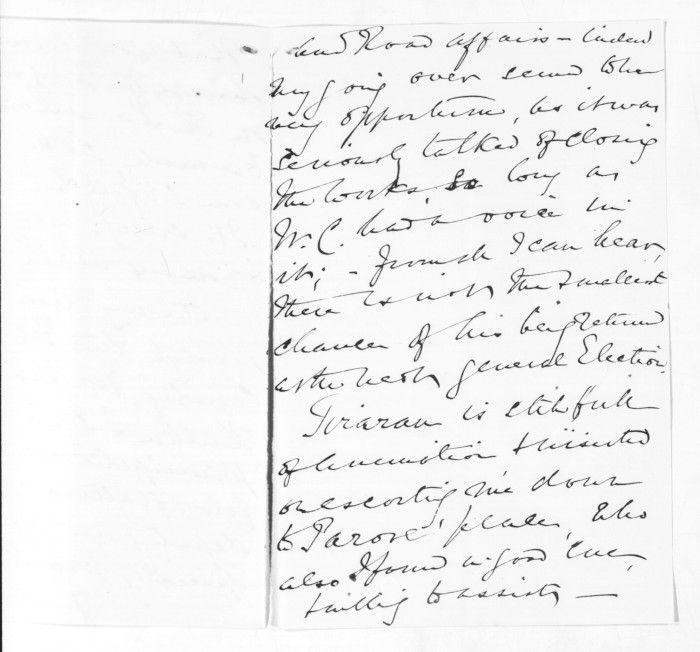 and Road affairs – indeed
my going over seemed to be
very opportune, as it was
seriously talked of closing
the works so long as
W. C. had a voice in
it; – from wh I can hear,
there is not the smallest
chance of his being returned
at the next general Election.
Tiraran is still full
of animation & insisted
on escorting me down
to Parore' place, who
also I found in good
& willing to assist –